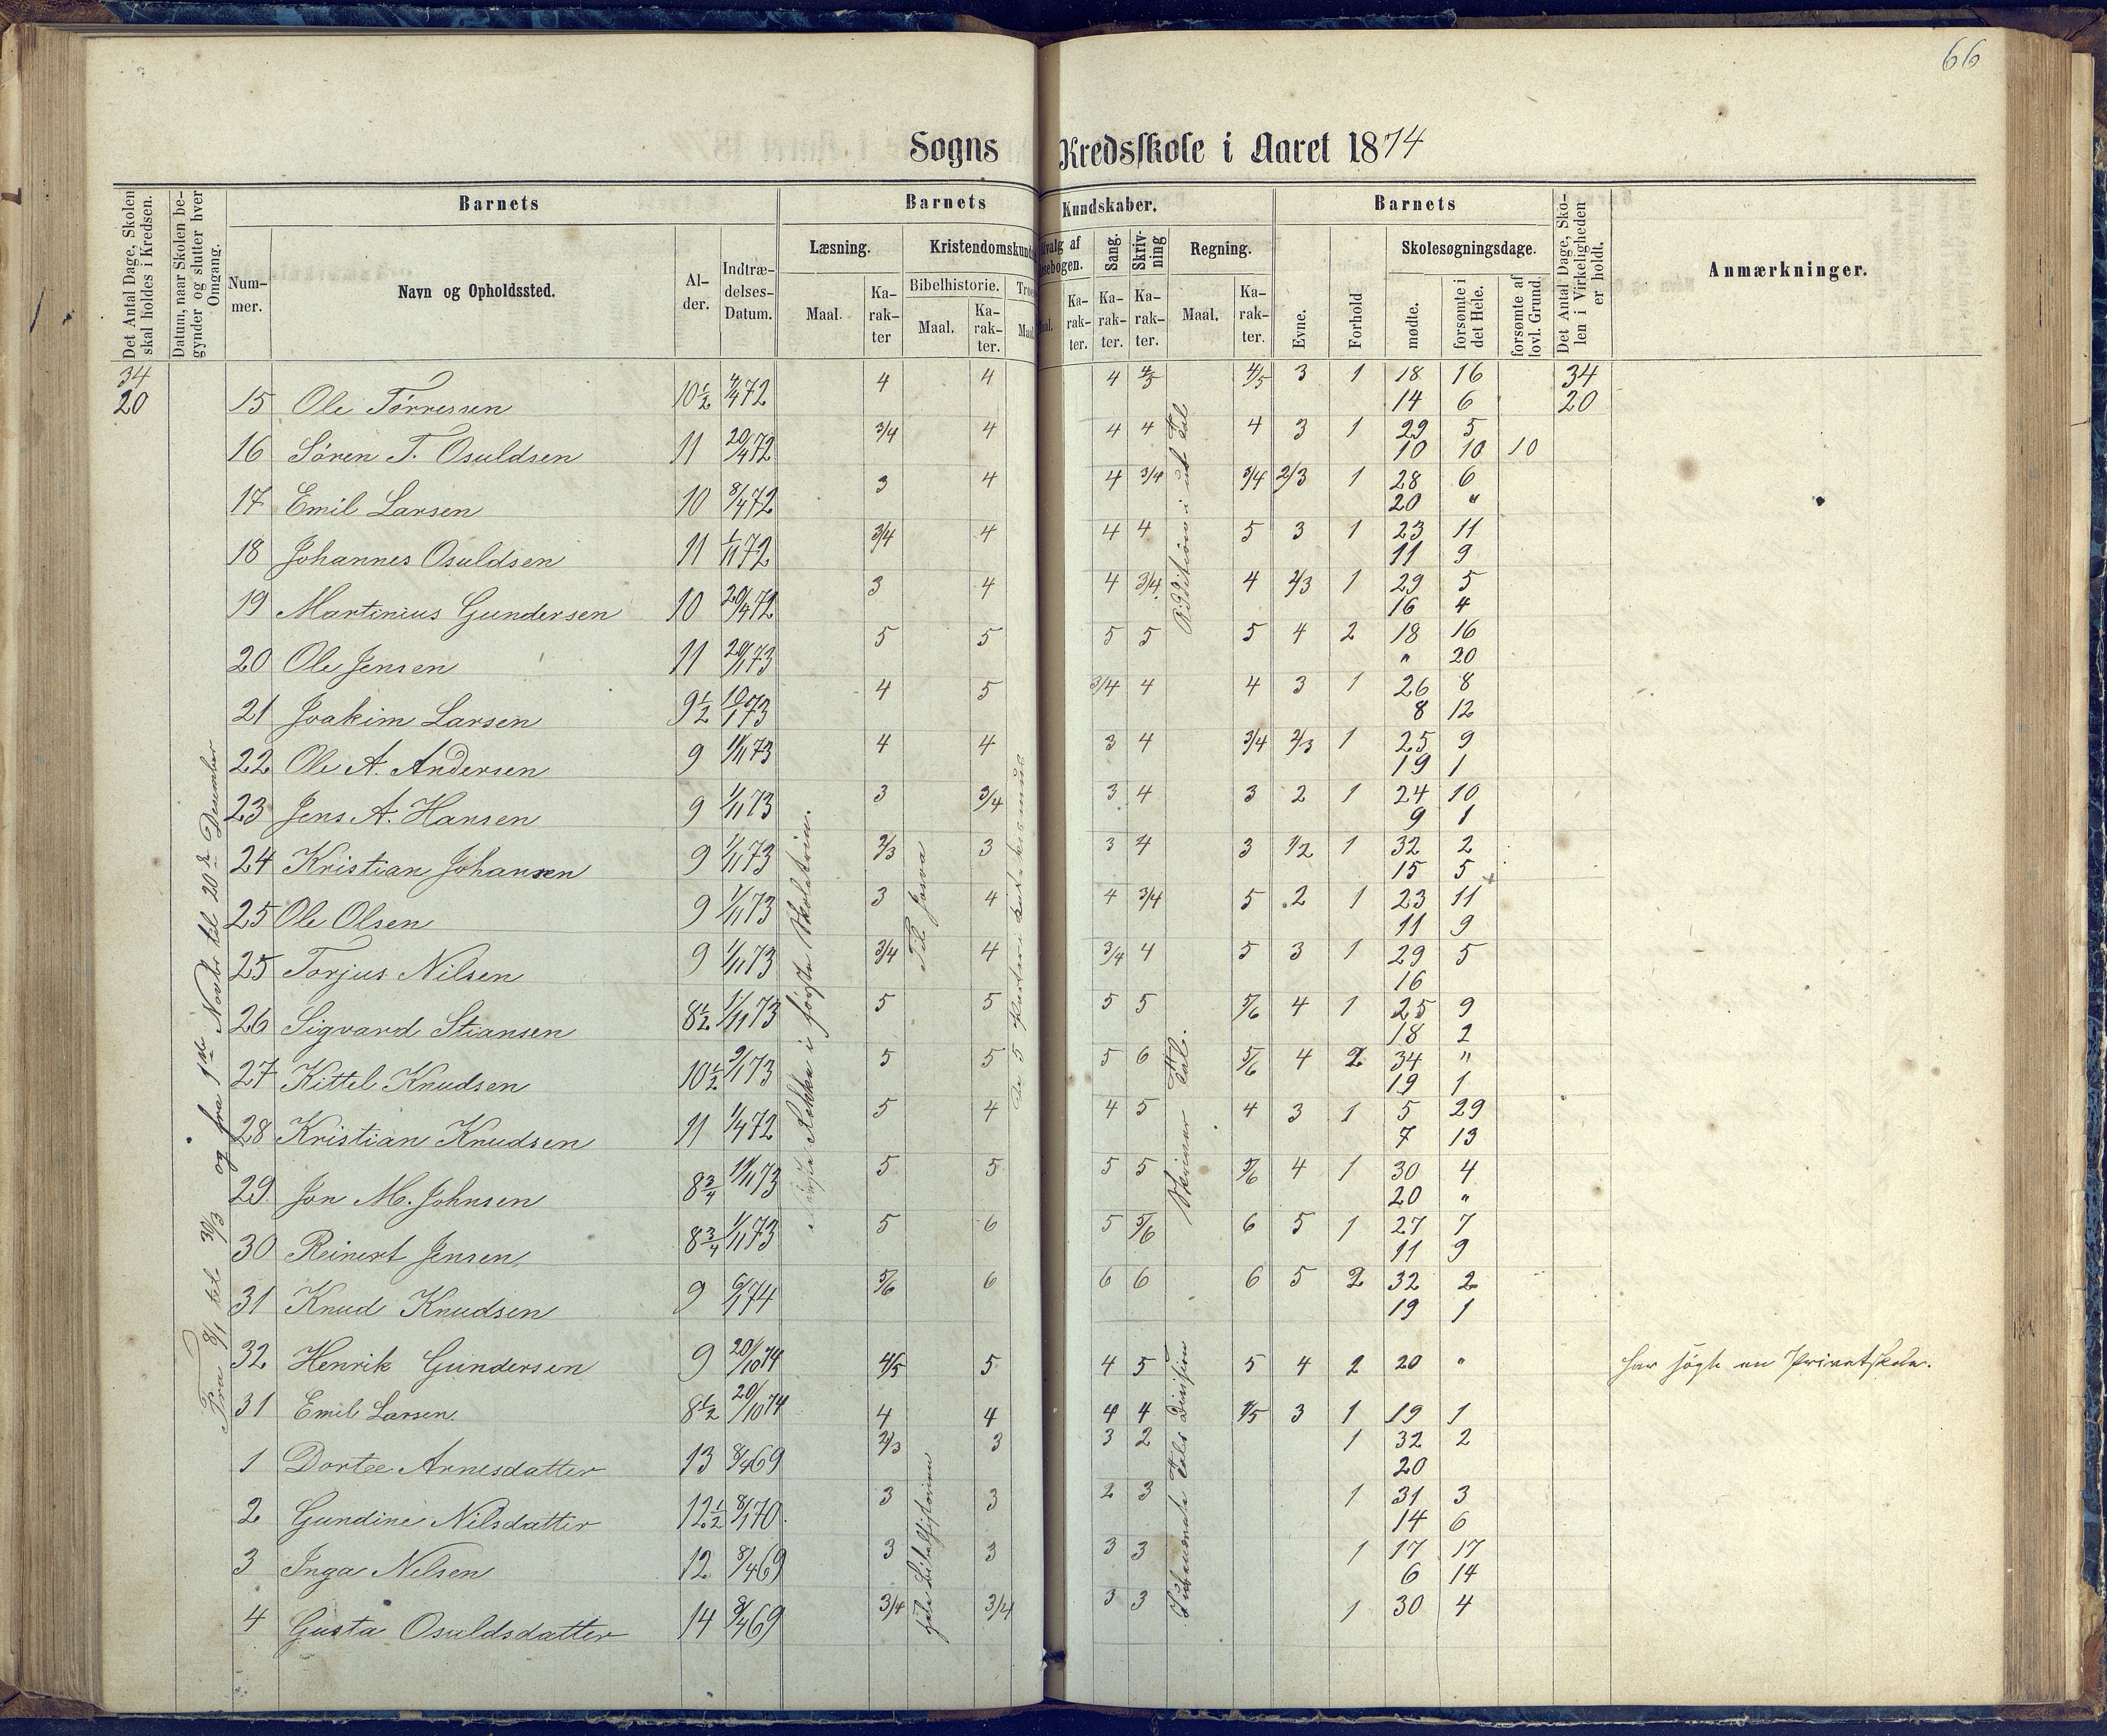 66
Sogns Kredsskole i Aaret 1874
Det Antal Dage, Skolen skal holdes i Kredsen.
Datum, naar Skolen begynder og slutter hver Omgang.
Barnets
Barnets
Kundskaber.
Barnets
Det Antal Dage, Skolen i Virkeligheden er holdt.
Anmærkninger.
Nummer.
Navn og Opholdssted.
Alder.
Indtrædelses-Datum.
Læsning.
Kristendomskund
Sang.
Skrivning
Regning.
Evne.
Forhold
Skolesøgningsdage.
Maal.
Karakter
Bibelhistorie.
Maal.
Karakter.
Karakter.
Karakter.
Karakter.
Maal.
Karakter.
mødte.
forsømte i det Hele.
forsømte af lovl. Grund.
34 20
Fra 8/1 til 30/3 og fra 1ste Novbr til 20de Desember
15 Ole Tørressen 10½ 4/4 72 4 4 4 4/5 4/5 3 1 18 16 34
14 6 20
16 Søren T. Osuldsen 11 20/4 72 3/4 4 4 4 4 3 1 29 5
10 10 10
17 Emil Larsen 10 8/4 72 3 4 4 3/4 3/4 2/3 1 28 6
20 "
18 Johannes Osuldsen 11 1/11 72 3/4 4 4 4 5 3 1 23 11
11 9
19 Martinius Gundersen 10 20/4 72 3 4 4 3/4 4 2/3 1 29 5
16 4
20 Ole Jensen 11 20/1 73 5 5 5 5 5 4 2 18 16
" 20
21 Joakim Larsen 9½ 10/1 73 4 5 3/4 4 4 3 1 26 8
8 12
22 Ole A. Andersen 9 1/11 73 4 4 3 4 3/4 2/3 1 25 9
19 1
23 Jens A. Hansen 9 1/11 73 3 3/4 3 4 3 2 1 24 10
9 1
24 Kristian Johansen 9 1/11 73 2/3 3 3 4 3 1/2 1 32 2
15 5
25 Ole Olsen 9 1/11 73 3 4 4 3/4 5 2 1 23 11
11 9
25 Torjus Nilsen 9 1/11 73 3/4 4 3/4 4 5 3 1 29 5
16
26 Sigvard Stiansen 8½ 1/11 73 5 5 5 5 5/6 4 1 25 9
18 2
27 Kittel Knudsen 10½ 9/1 73 5 5 5 6 5/6 4 2 34 "
19 1
28 Kristian Knudsen 11 1/4 72 5 4 4 5 4 3 1 5 29
7 13
29 Jon M. Johnsen 8¾ 11/11 73 5 5 5 5 5/6 4 1 30 4
20 "
30 Reinert Jensen 8¾ 1/11 73 5 6 5 5/6 6 5 1 27 7
11 9
31 Knud Knudsen 9 6/1 74 5/6 6 6 6 6 5 2 32 2
19 1
32 Henrik Gundersen 9 20/10 74 4/5 5 4 5 5 4 2 20 " har søgt en Privatskole.
31 Emil Larsen 8½ 20/10 74 4 4 4 4 4/5 3 1 19 1
1 Dortee Arnesdatter 13 8/4 69 2/3 3 3 2 1 32 2
20
2 Gundine Nilsdatter 12½ 8/1 70 3 3 2 3 1 31 3
14 6
3 Inga Nilsen 12 8/4 69 3 3 3 3 1 17 17
6 14
4 Gusta Osuldsdatter 14 8/4 69 3/4 3/4 3 3 1 30 4
Rekke i første Skoletrin.
Til Josva
De 5 Parter i Katekismus
hele Bibelhistorien
Addition i ub. Tal
Skriver Tal.
Ubenævnte Tals Division